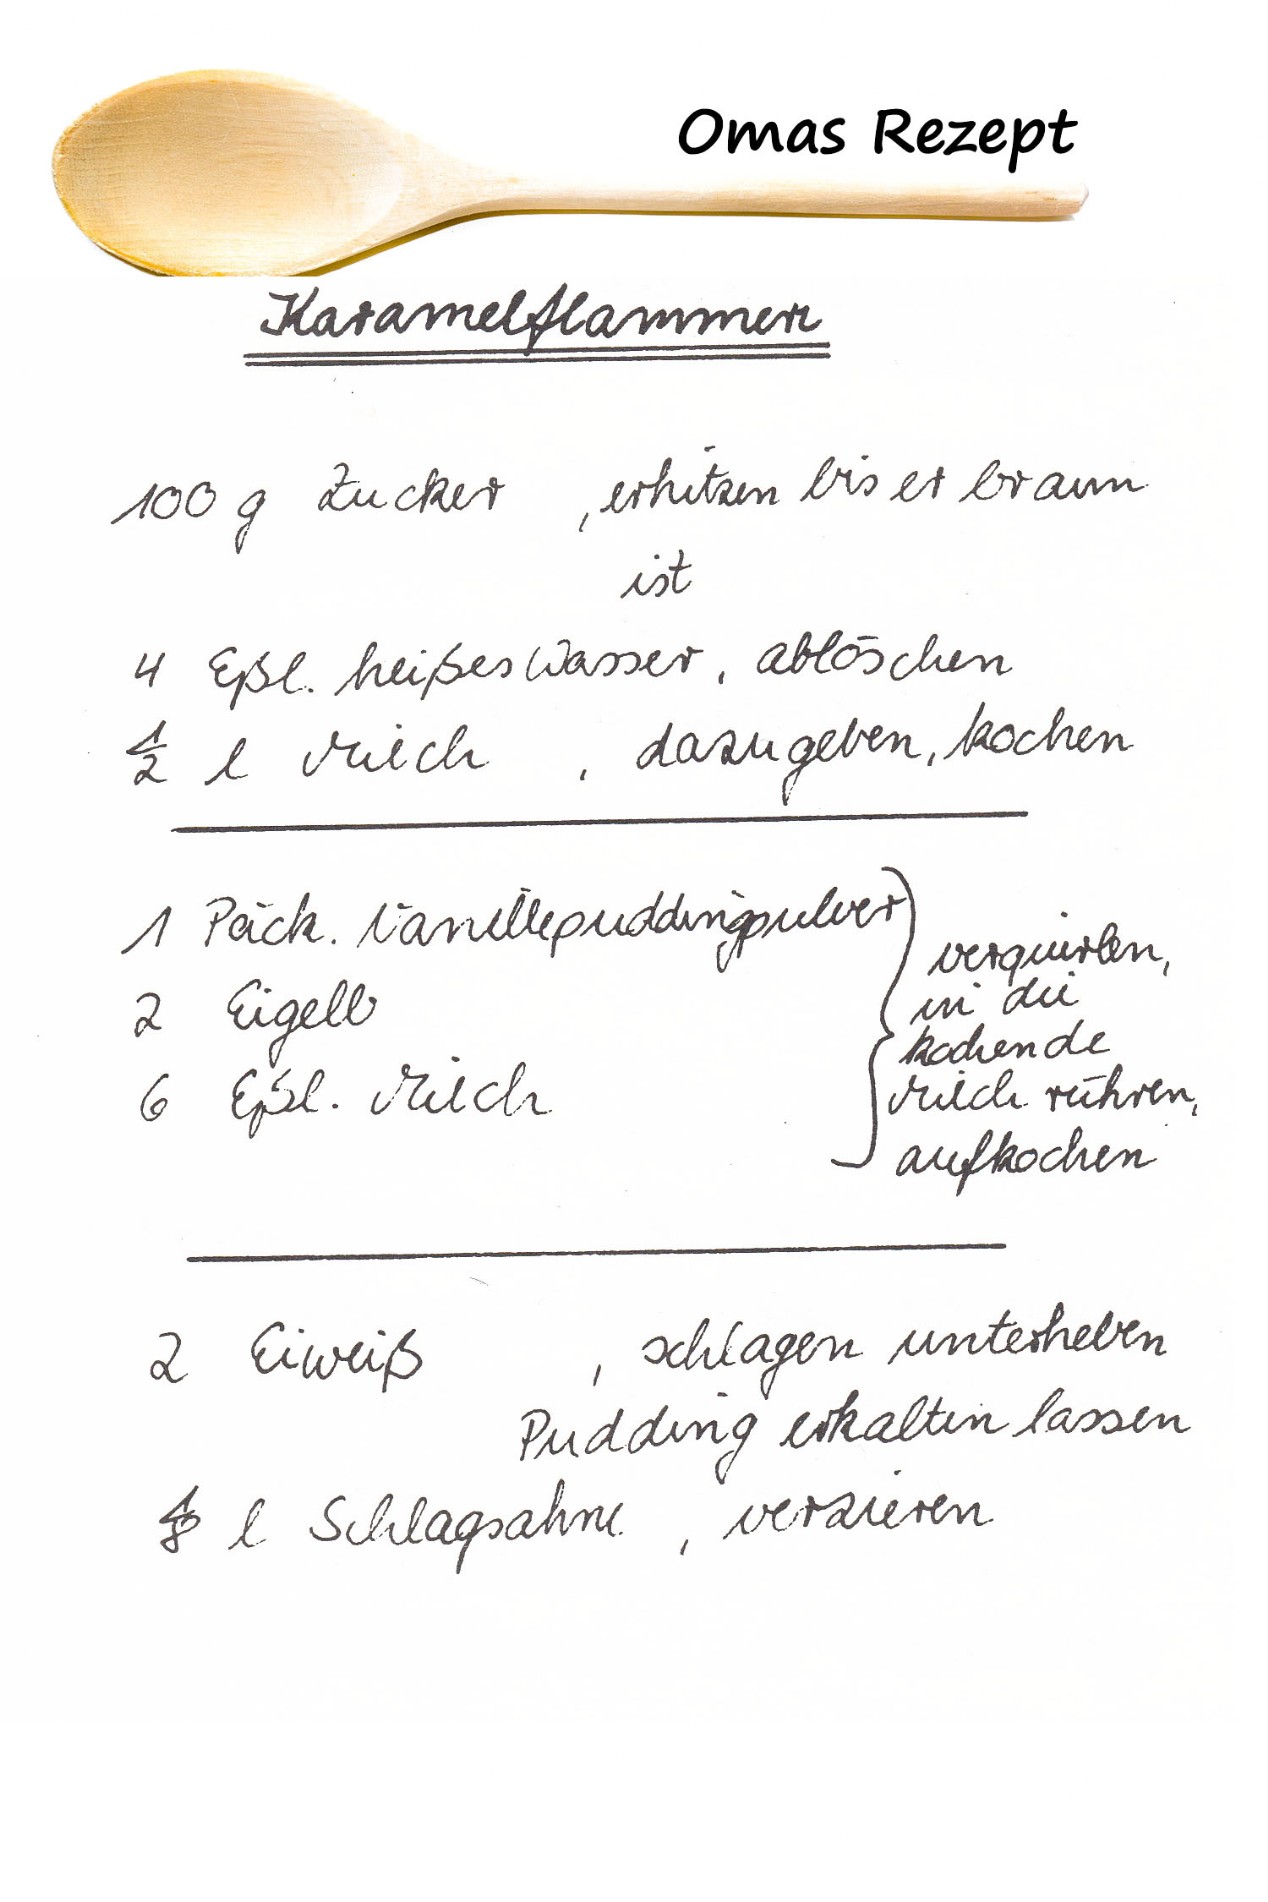 Omas Rezept
Karamelflammeri
100 g Zucker , erhitzen bis er braun
ist
4 Eßl. heißes Wasser, ablöschen
1/2 l Milch , dazugeben, kochen
1 Päck. Vanillepuddingpulver
2 Eigelb
6 Eßl. Milch
verquirlen,
in die
kochende
Milch rühren,
aufkochen
2 Eiweiß , schlagen unterheben
Pudding erkalten lassen
1/8 l Schlagsahne , verzieren